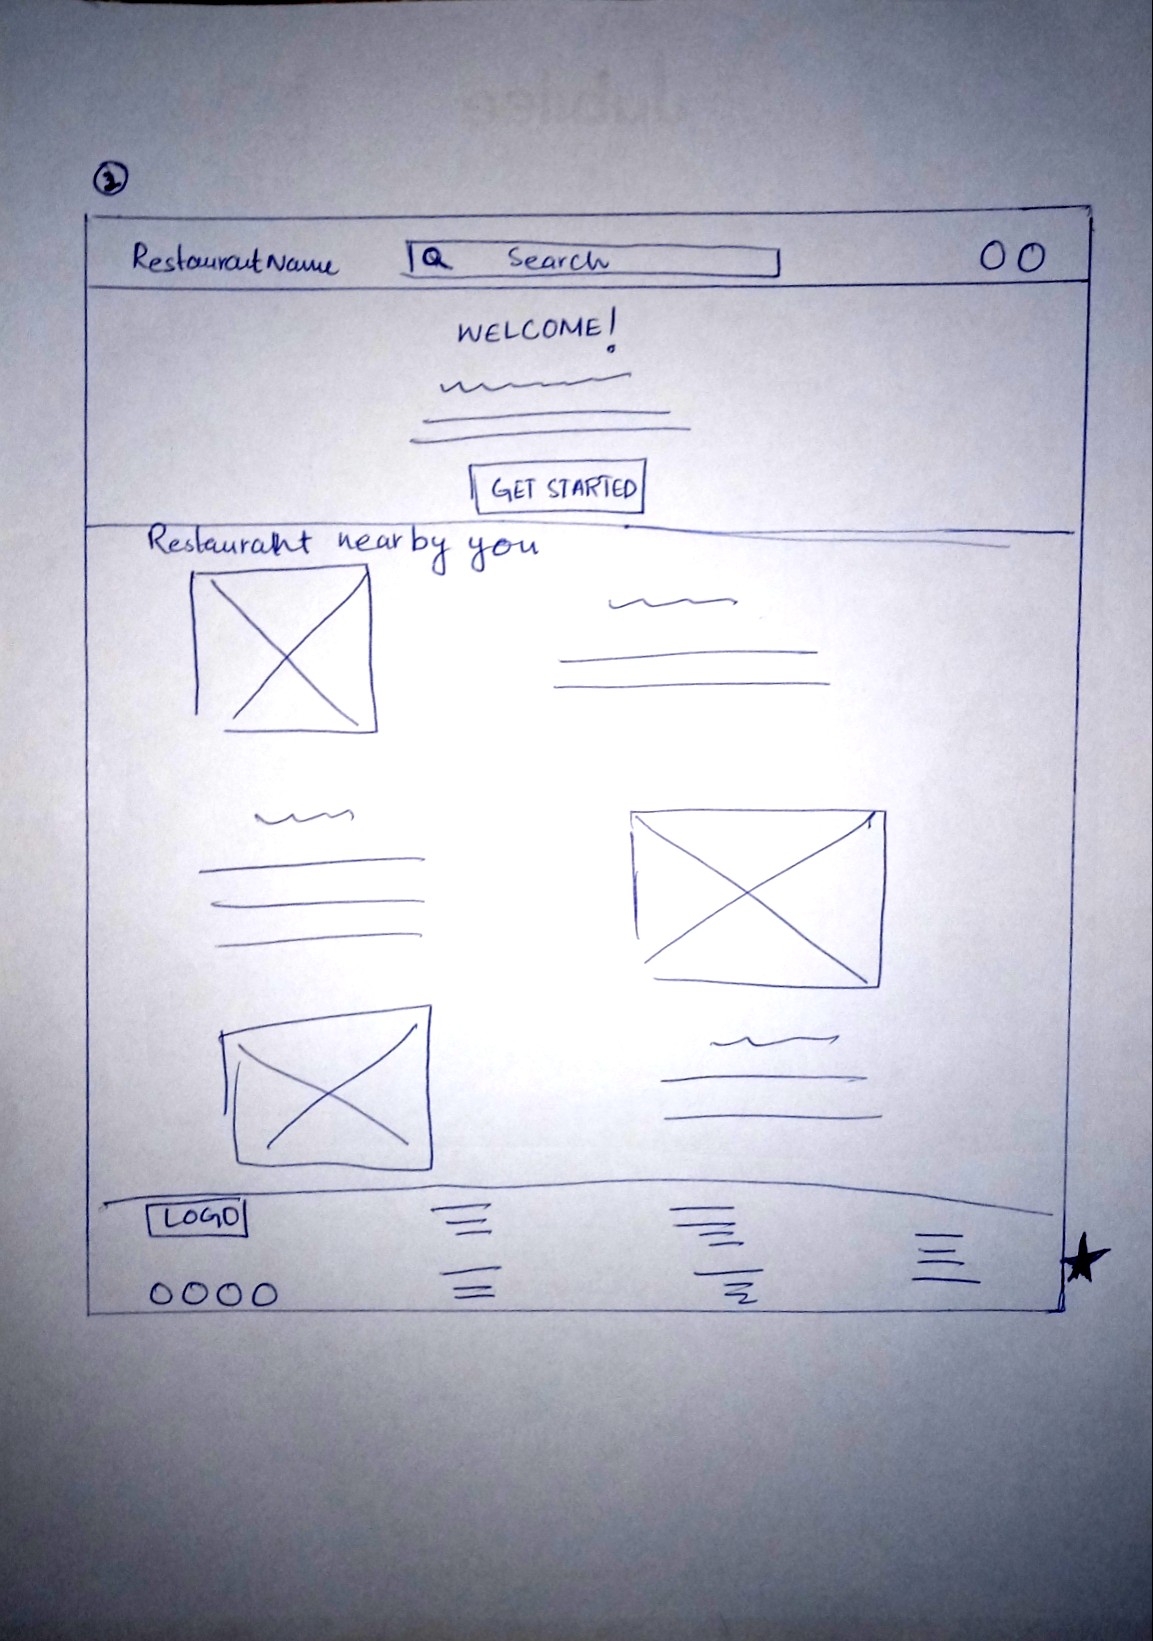 2
Restaurant Name
Search
WELCOME!
GET STARTED
Restaurant nearby you
LOGO